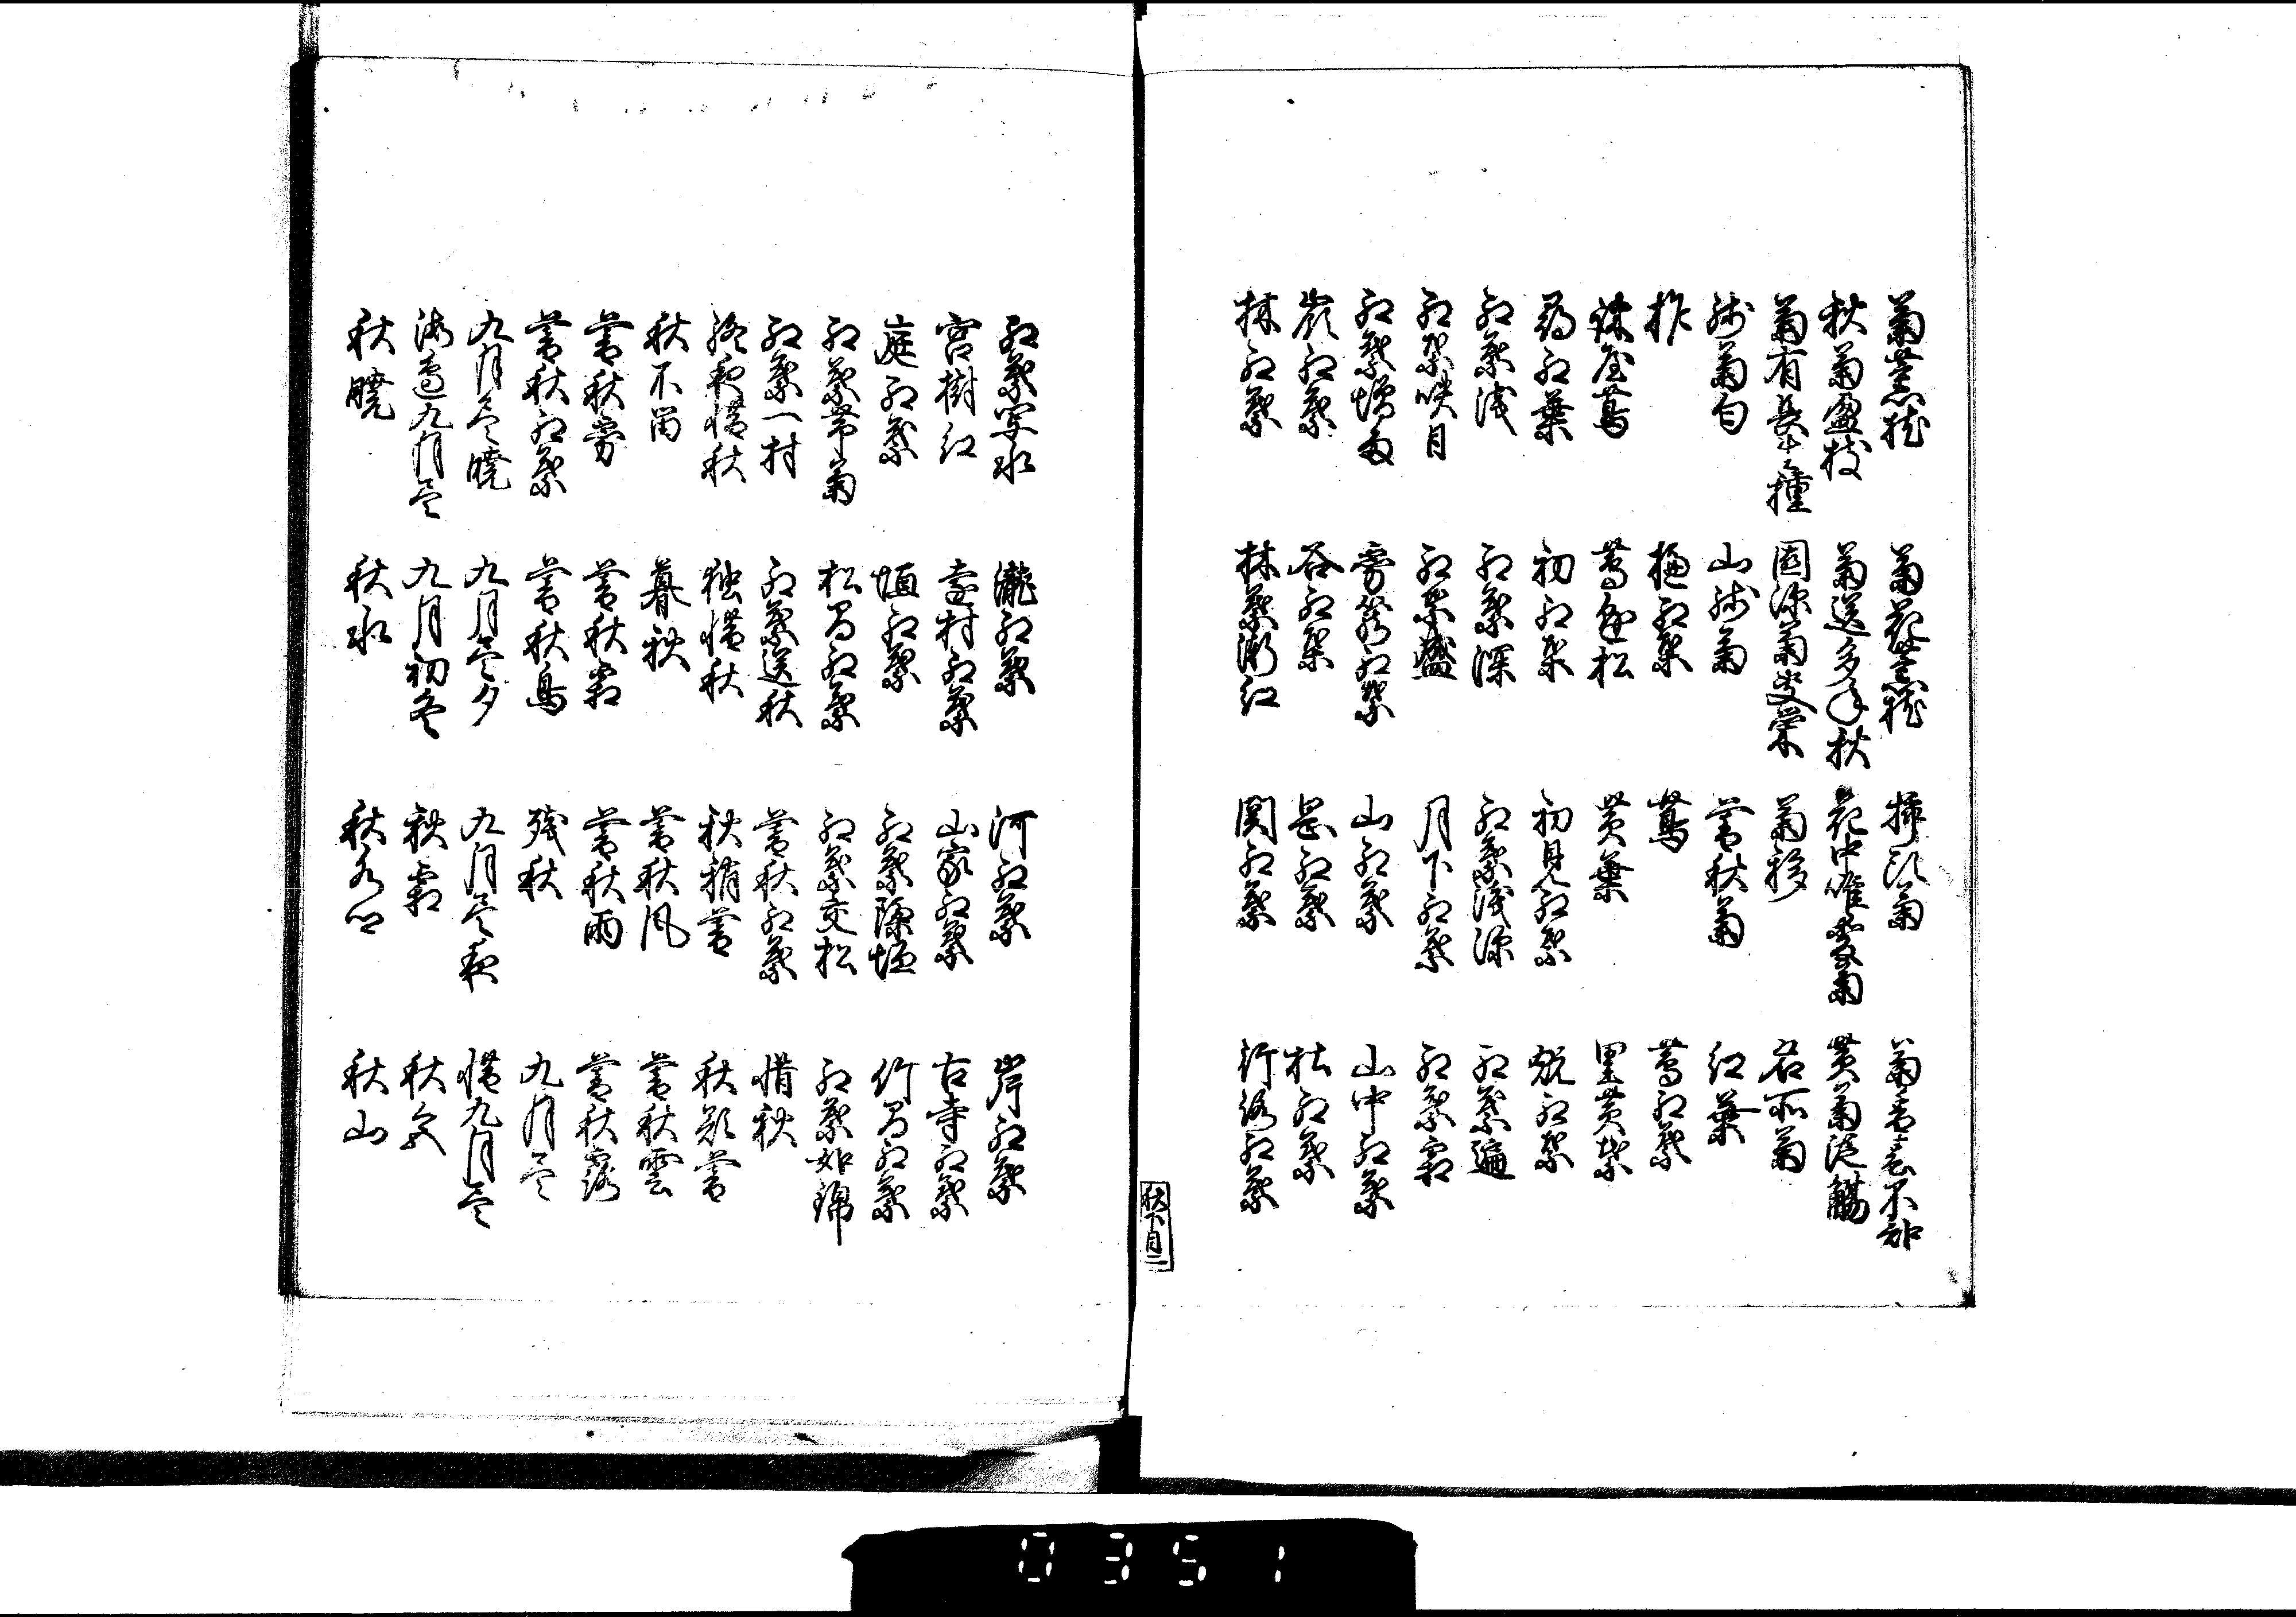 菊薫枕 菊花薫枕 挿頭菊 菊香春不知
秋菊盈枝 菊送多年秋 花中唯愛菊 黄菊泛觴
菊有長生種 園深菊葉 菊移 名所菊
残菊匂 山残菊 暮秋菊 紅葉
柞 櫨紅葉 蔦 蔦紅葉
蔦 蔦 松 黄葉 里黄葉
紅葉 初紅葉 初見紅葉 紅葉
紅葉浅 紅葉深 紅葉浅深 紅葉遍
紅葉映月 紅葉盛 月下紅葉 紅葉霜
紅葉増雨 霧籠紅葉 山紅葉 山中紅葉
嶺紅葉 谷紅葉 岡紅葉 杜紅葉
林紅葉 林葉漸紅 関紅葉 行路紅葉
秋下目二
紅葉写水 瀧紅葉 河紅葉 岸紅葉
宮樹紅 遠村紅葉 山家紅葉 古寺紅葉
庭紅葉 垣紅葉 紅葉隠垣 竹間紅葉
紅葉帯菊 松間紅葉 紅葉交松 紅葉如錦
紅葉一村 紅葉送秋 暮秋紅葉 惜秋
終夜惜秋 独惜秋 秋稍暮 秋欲暮
秋不留 暮秋 暮秋風 暮秋雲
暮秋霧 暮秋霜 暮秋雨 暮秋露
暮秋紅葉 暮秋鳥 残秋 九月尽
九月尽暁 九月尽夕 九月尽夜 惜九月尽
海辺九月尽 九月初冬 秋霜 秋
秋暁 秋水 秋 秋山
0351